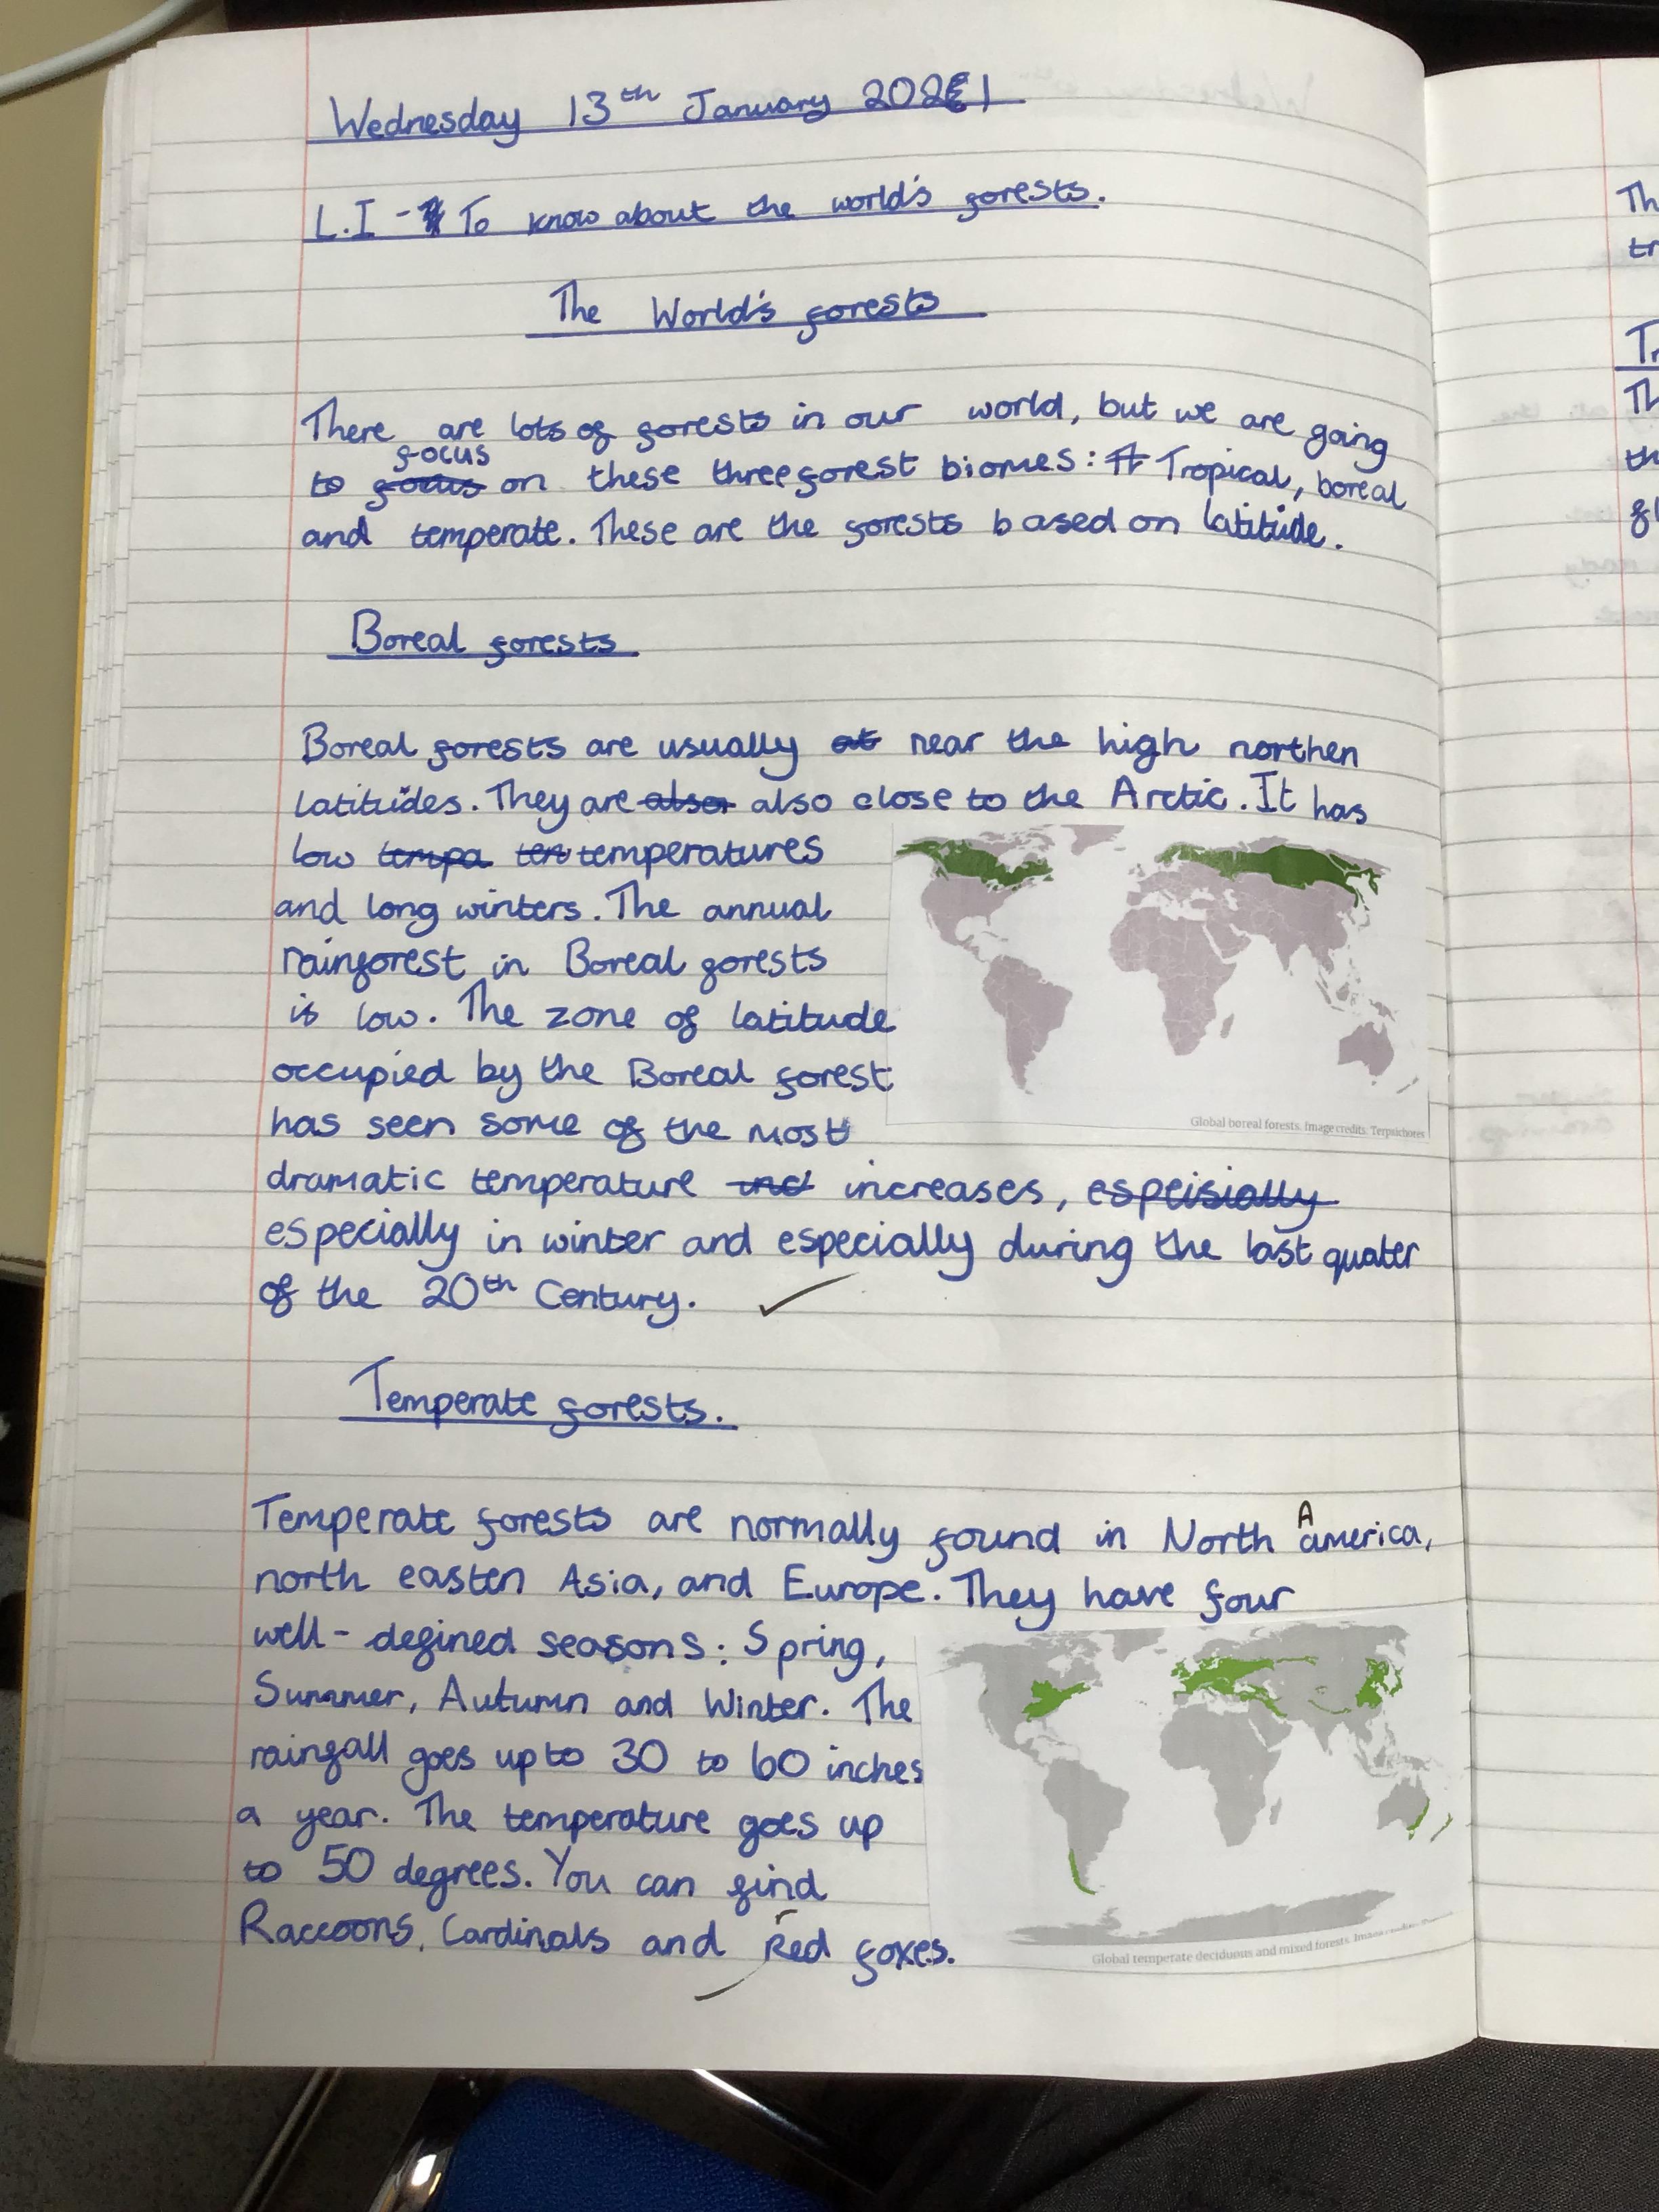 Wednesday 13th January 2021
L.I - To know about the world's forests.
The World's forests
There are lots of forests in our world, but we are going
focus
to focus on these three forest biomes: Tropical, boreal
and temperate. These are the forests based on latitude.
Boreal forests
Boreal forests are usually at near the high northen
latitudes. They are also also close to the Arctic. It has
low tempa tem temperatures
and long winters. The annual
rainforest in Boreal forests
is low. The zone of latitude
occupied by the Boreal forest
has seen some of the most
dramatic temperature inc increases, espeisially
especially in winter and especially during the last quater
of the 20th Century.
Global boreal forests. Image credits: Terpsichores
Temperate forests.
A
Temperate forests are normally found in North america,
north easten Asia, and Europe. They have four
well-defined seasons: Spring,
Summer, Autumn and Winter. The
rainfall goes up to 30 to 60 inches
a year. The temperature goes up
to 50 degrees. You can find
r
Raccoons, Cardinals and Red foxes.
Global temperate deciduous and mixed forests.
Th
tr
Tr
Th
th
fl